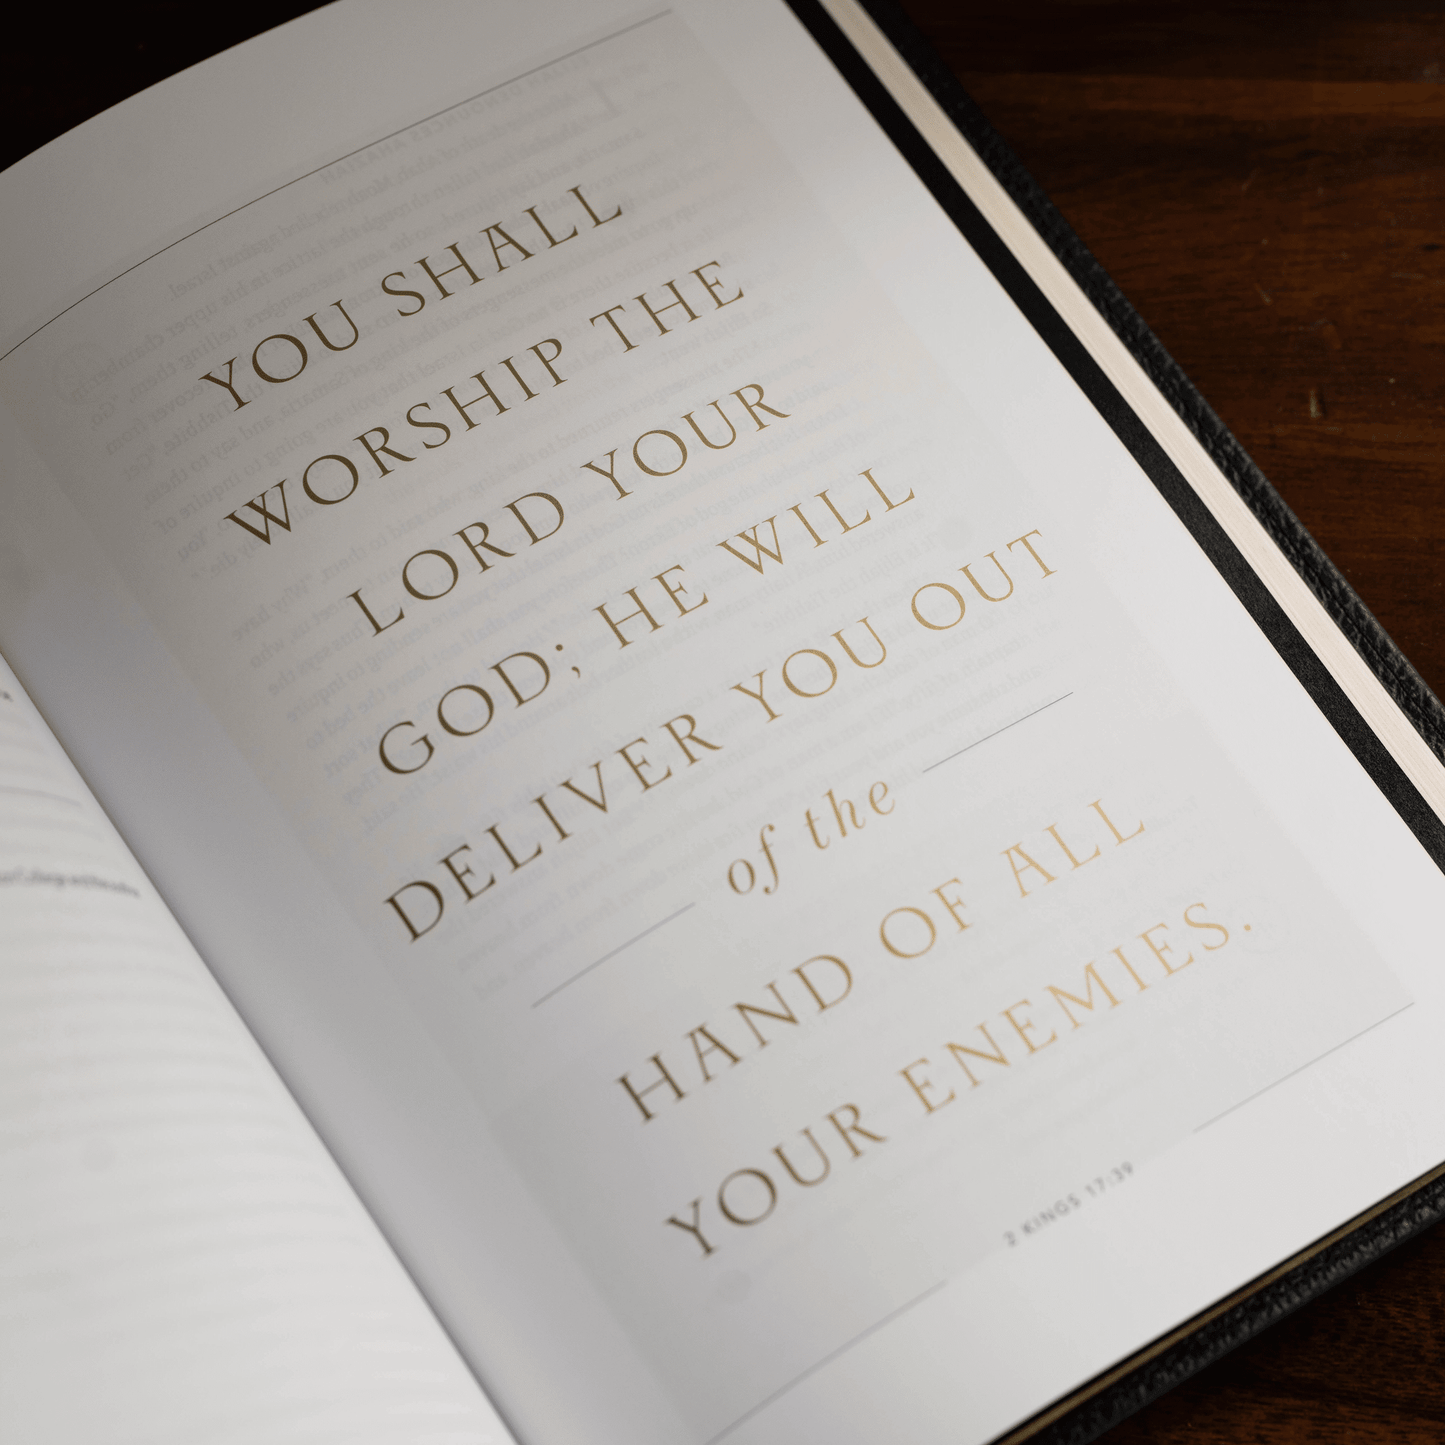 YOU SHALL
WORSHIP THE
LORD YOUR
GOD; HE WILL
DELIVER YOU OUT
of the
HAND OF ALL
YOUR ENEMIES.
2 KINGS 17:39